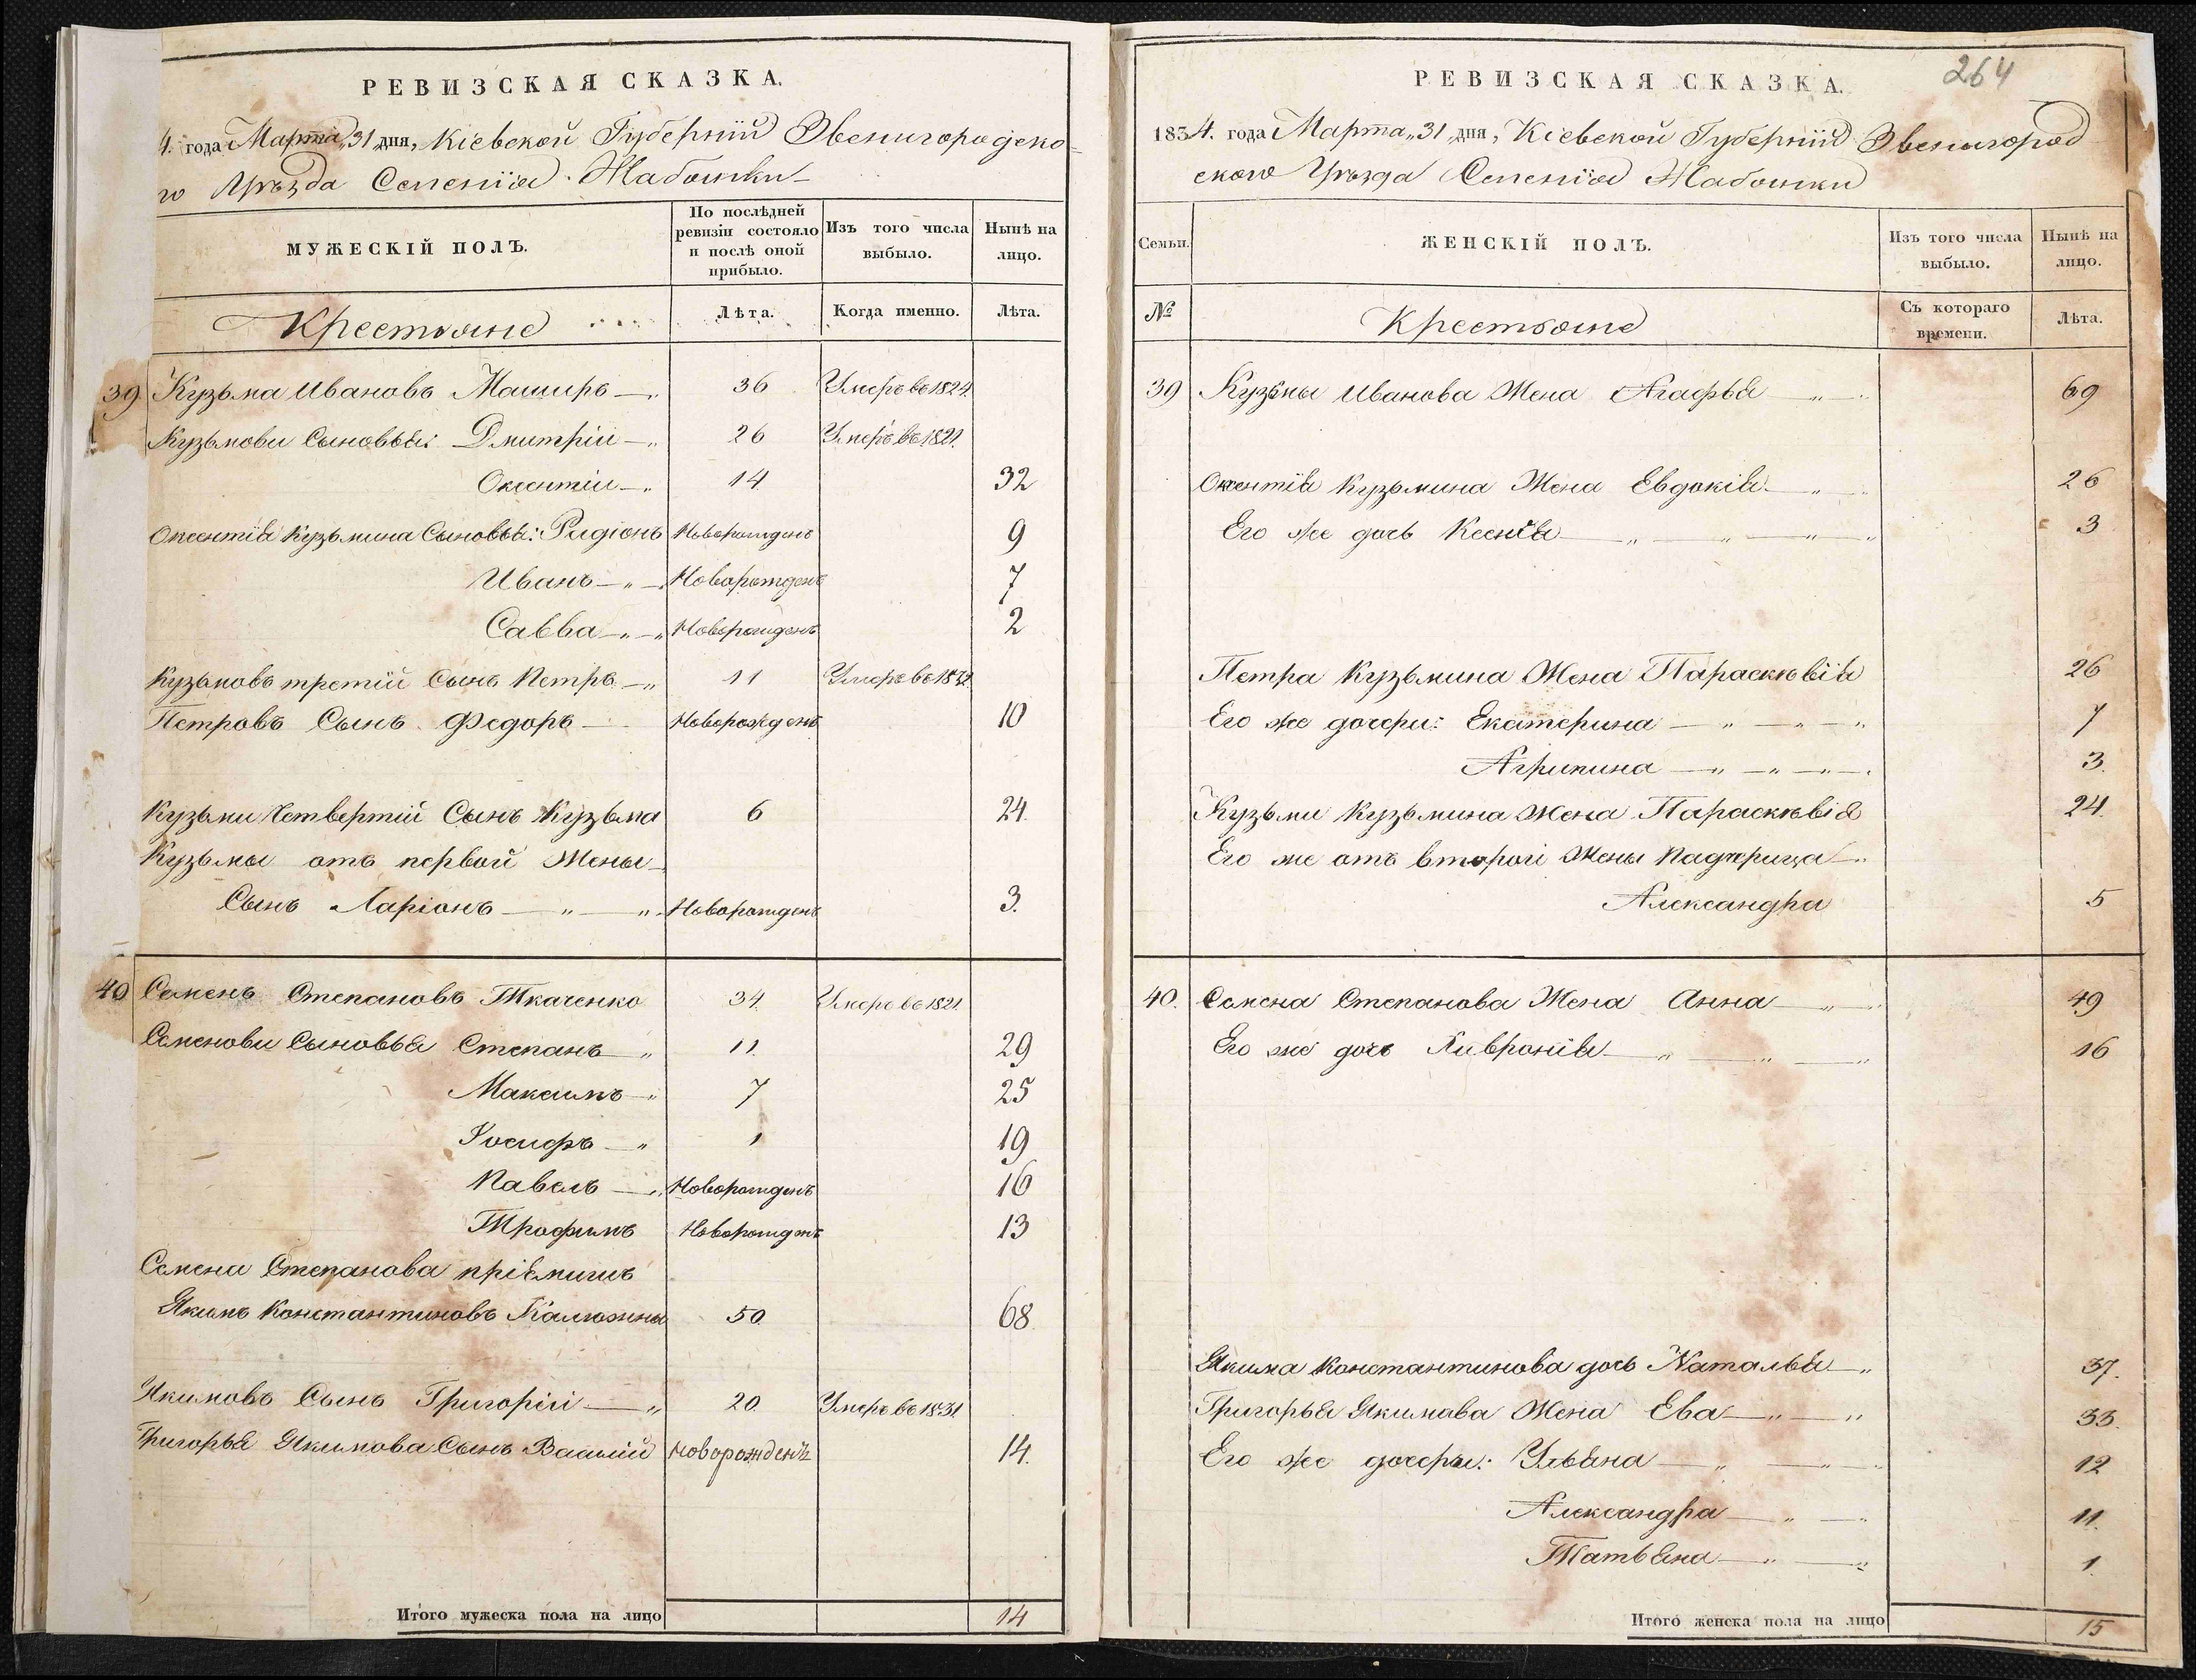 РЕВИЗСКАЯ СКАЗКА.
4. года Марта 31 дня, Кіевской Губерніи Звенигородско-
го Уѣзда Селенія Жабошки
МУЖЕСКІЙ ПОЛЪ.
По послѣдней ревизіи состояло и послѣ оной прибыло.
Изъ того числа выбыло.
Нынѣ на лицо.
Крестьяне
Лѣта.
Когда именно.
Лѣта.
39 Кузьма Ивановъ 36 Умеръ въ 1824.
Кузьмови Сыновья: Дмитрій 26 Умеръ въ 1821.
Оксентій 14. 32
Оксентія Кузьмина Сыновья: Радіонъ Новорожденъ 9
Иванъ Новорожденъ 7
Савва Новорожденъ 2
Кузьмовъ третій Сынъ Петръ 11 Умеръ въ
Петровъ Сынъ Федоръ Новорожденъ 10
Кузьми Четвертій Сынъ Кузьма 6 24.
Кузьмы отъ первой Жены
Сынъ Ларіонъ Новорожденъ 3.
40 Семенъ Степановъ Ткаченко 34. Умеръ въ 1821.
Семенови Сыновья Степанъ 11. 29
Максимъ 7 25
Іосифъ 1 19
Павелъ Новорожденъ 16
Трофимъ Новорожденъ 13
Семена Степанова пріемишъ
Якимъ Константиновъ 50. 68
Якимовъ Сынъ Григорій 20. Умеръ въ 1831
Григорья Якимова Сынъ Василій новорожденъ 14.
Итого мужеска пола на лицо 14
264
РЕВИЗСКАЯ СКАЗКА.
1834. года Марта 31 дня, Кіевской Губерніи Звенигород
ского Уѣзда Селенія Жабошки
Семьи.
ЖЕНСКІЙ ПОЛЪ.
Изъ того числа выбыло.
Нынѣ на лицо.
№
Крестьяне
Съ котораго времени.
Лѣта.
39 Кузьмы Иванова Жена Агафья 69
Оксентія Кузьмина Жена Евдокія 26
Его же дочь Ксенія 3
Петра Кузьмина Жена Параскѣвія 26
Его же дочери: Екатерина 7
Агрипина 3.
Кузьми Кузьмина Жена Параскѣвія 24.
Его же отъ второй Жены падчерица
Александра 5
40. Семена Степанова Жена Анна 49
Его же дочь 16
Якима Константинова дочь Наталья 37.
Григорья Якимава Жена Ева 33.
Его же дочери: Ульяна 12
Александра 11.
Татьяна 1.
Итого женска пола на лицо 15